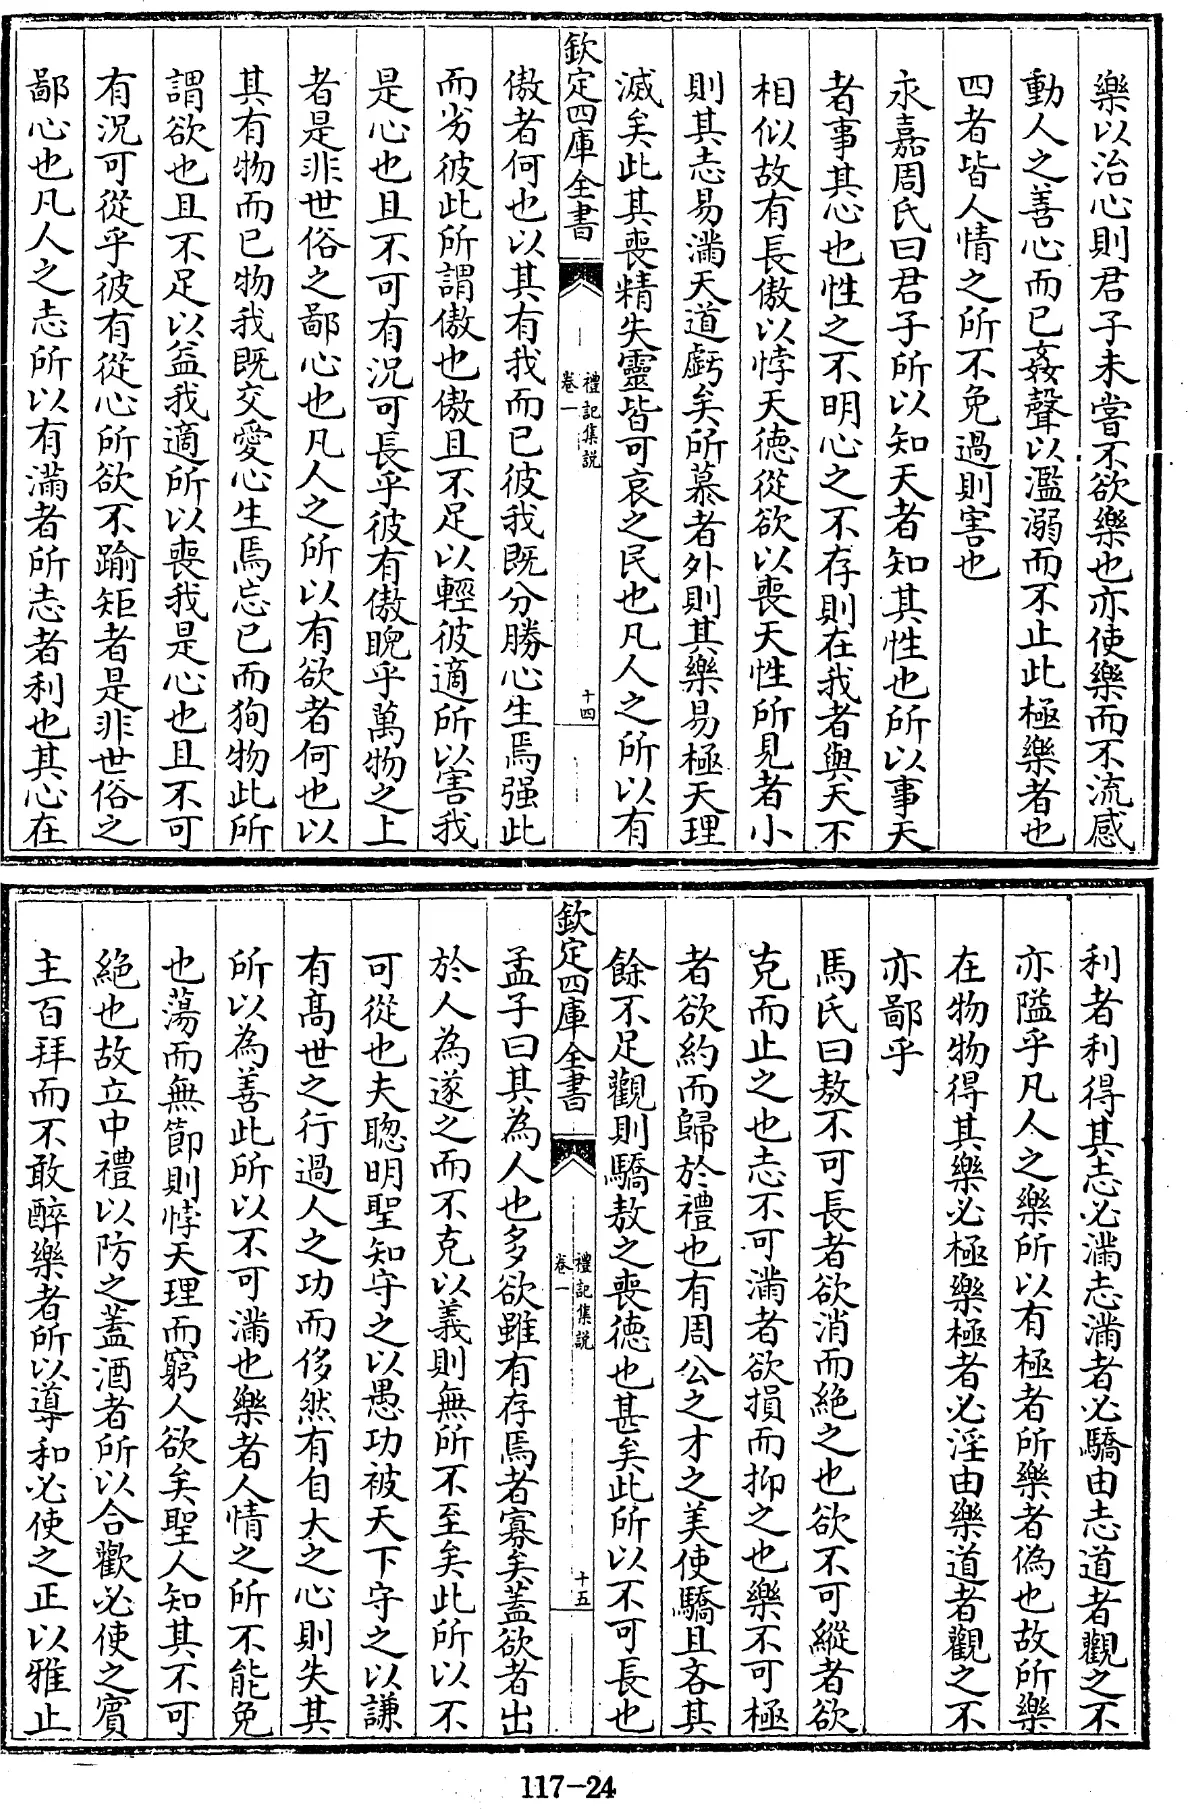 樂以治心則君子未嘗不欲樂也亦使樂而不流感
動人之善心而已姦聲以濫溺而不止此極樂者也
四者皆人情之所不免過則害也
永嘉周氏曰君子所以知天者知其性也所以事天
者事其心也性之不明心之不存則在我者與天不
相似故有長傲以悖天德從欲以喪天性所見者小
則其志易滿天道虧矣所慕者外則其樂易極天理
滅矣此其喪精失靈皆可哀之民也凡人之所以有
欽定四庫全書
禮記集說
卷一
十四
傲者何也以其有我而已彼我既分勝心生焉强此
而劣彼此所謂傲也傲且不足以輕彼適所以害我
是心也且不可有況可長乎彼有傲睨乎萬物之上
者是非世俗之鄙心也凡人之所以有欲者何也以
其有物而已物我既交愛心生焉忘已而狥物此所
謂欲也且不足以益我適所以喪我是心也且不可
有況可從乎彼有從心所欲不踰矩者是非世俗之
鄙心也凡人之志所以有滿者所志者利也其心在
利者利得其志必滿志滿者必驕由志道者觀之不
亦隘乎凡人之樂所以有極者所樂者偽也故所樂
在物物得其樂必極樂極者必淫由樂道者觀之不
亦鄙乎
馬氏曰敖不可長者欲消而絶之也欲不可縱者欲
克而止之也志不可滿者欲損而抑之也樂不可極
者欲約而歸於禮也有周公之才之美使驕且吝其
餘不足觀則驕敖之喪德也甚矣此所以不可長也
欽定四庫全書
禮記集說
卷一
十五
孟子曰其為人也多欲雖有存焉者寡矣蓋欲者出
於人為遂之而不克以義則無所不至矣此所以不
可從也夫聰明聖知守之以愚功被天下守之以謙
有髙世之行過人之功而侈然有自大之心則失其
所以為善此所以不可滿也樂者人情之所不能免
也蕩而無節則悖天理而窮人欲矣聖人知其不可
絶也故立中禮以防之蓋酒者所以合歡必使之賓
主百拜而不敢醉樂者所以導和必使之正以雅止
117-24